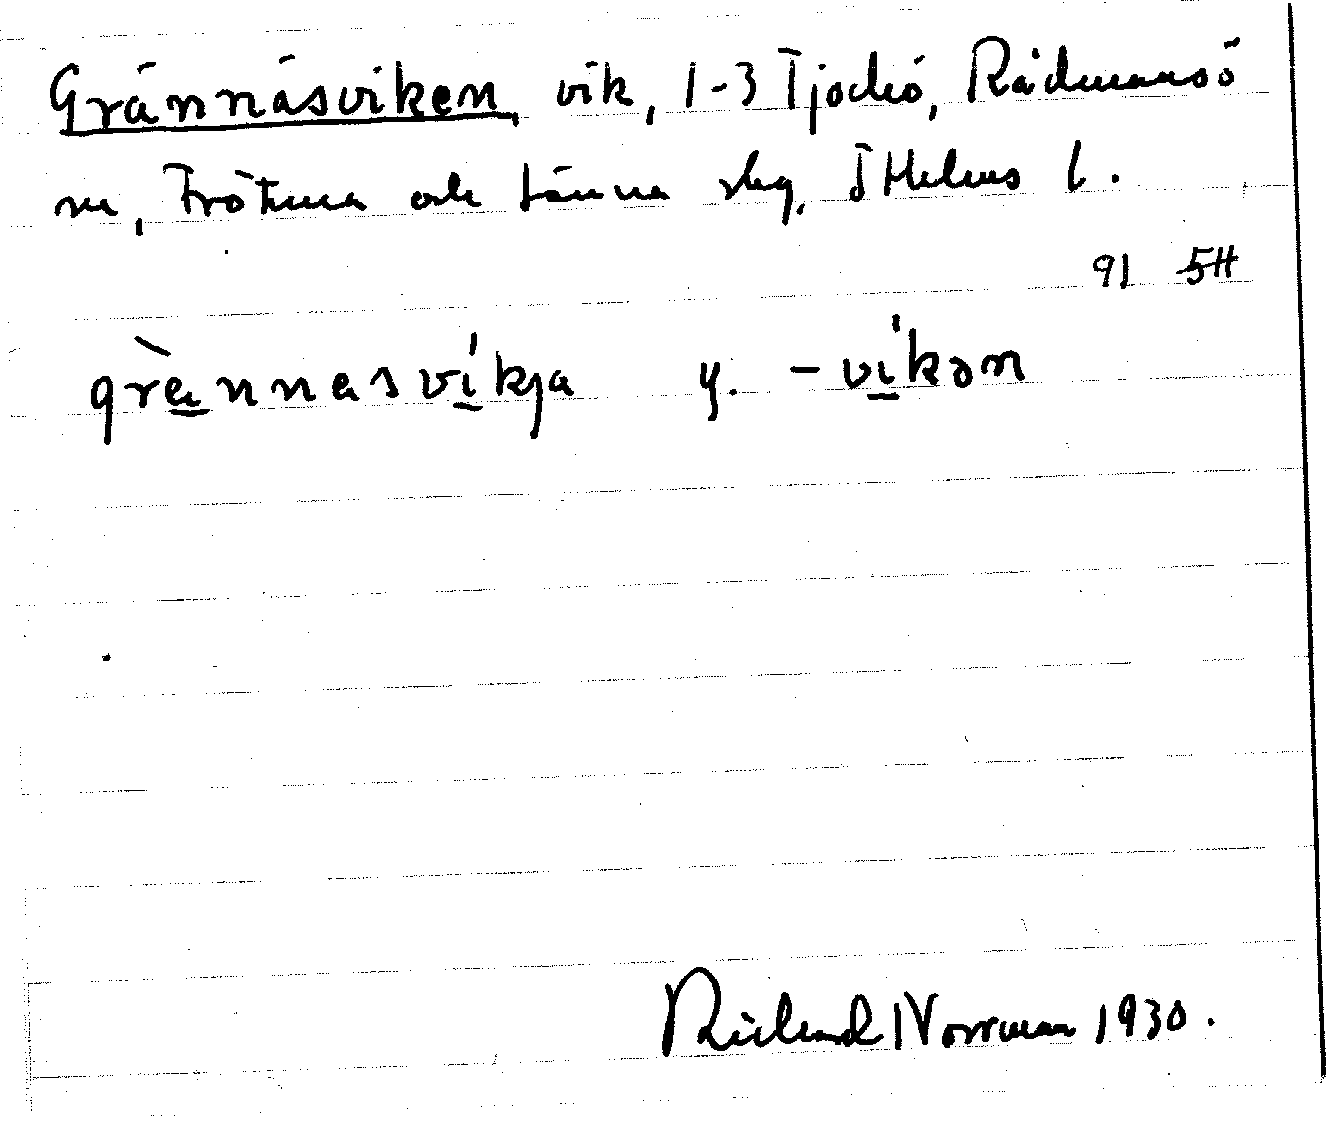 Grännäsviken, vik, 1-3 Tjockö, Rådmansö
sn, Frötuna och Länna skg, Sthlms l.
91 5H
grènnasvíkja y. -víkən
Rickard Norrman 1930.